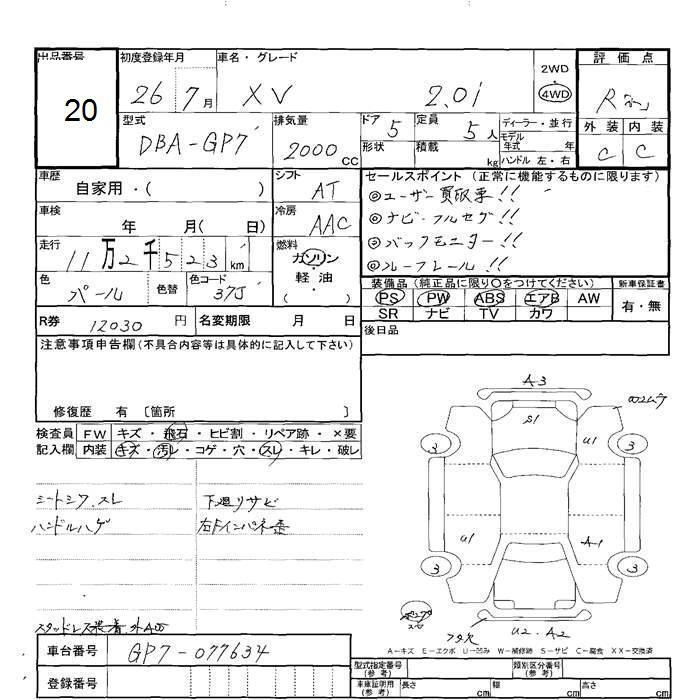 出品番号 初度登録年月 車名・グレード 評価点
20 26 7月 XV 2.0i 2WD 4WD R
型式 排気量 ドア 5 定員 5人 ディーラー・並行 外装 内装
DBA-GP7 2000cc 形状 積載 kg モデル年式 年 C C
ハンドル 左・右
車歴 自家用・( ) シフト AT セールスポイント(正常に機能するものに限ります)
◎ユーザー買取車!!
車検 年 月( 日) 冷房 AAC ◎ナビ・フルセグ!!
走行 11万2千523km 燃料 ガソリン・軽油 ◎バックモニター!!
◎ルーフレール!!
色 パール 色替 色コード 37J 装備品(純正品に限り○をつけてください) 新車保証書
PS PW ABS エアB AW 有・無
R券 12030円 名変期限 月 日 SR ナビ TV カワ
注意事項申告欄(不具合内容等は具体的に記入して下さい) 後日品
修復歴 有 [箇所 ]
検査員 FW キズ・飛石・ヒビ割・リペア跡・×要
記入欄 内装 キズ・汚レ・コゲ・穴・スレ・キレ・破レ
シートシワ.スレ 下廻りサビ
ハンドルハゲ
A3
S1 U1
3 3
U1 A1
3 3
U2.A2
A-キズ E-エクボ U-凹み W-補修跡 S-サビ C-腐食 XX-交換済
車台番号 GP7-077634 型式指定番号(参考) 類別区分番号(参考)
登録番号 車庫証明用(参考) 長さ cm 幅 cm 高さ cm